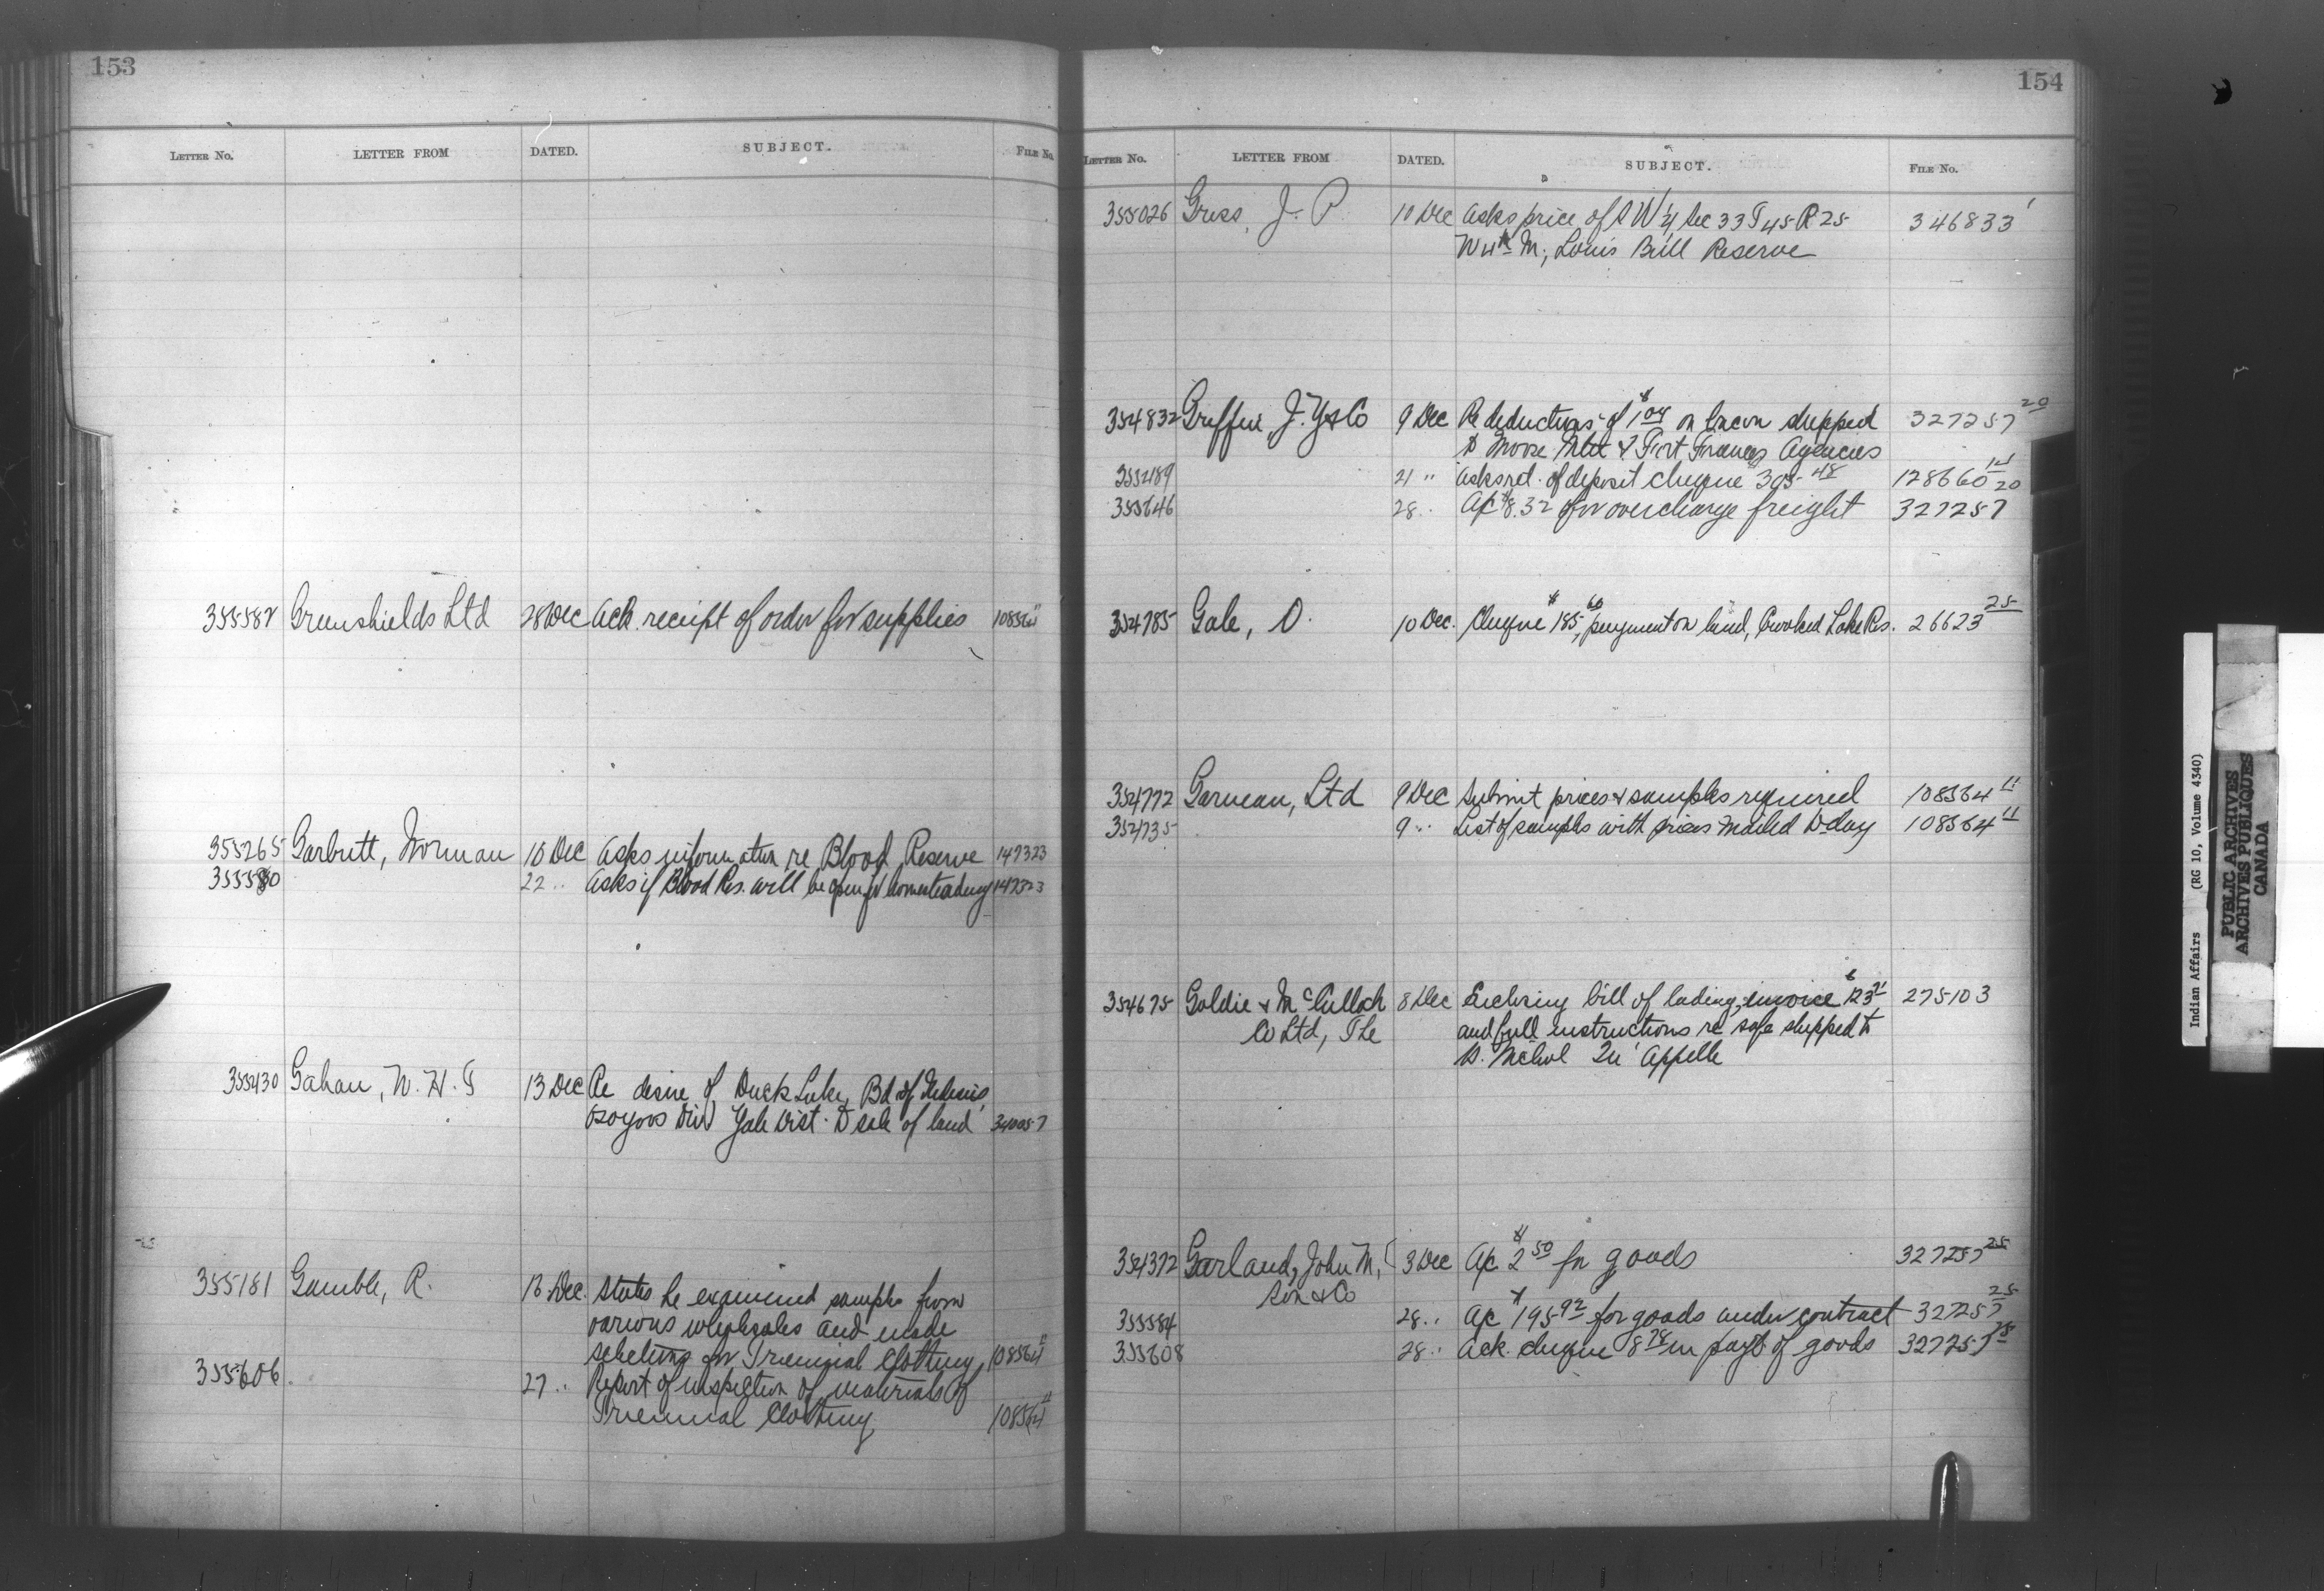 153
LETTER No. LETTER FROM DATED. SUBJECT. FILE No.
355587 Greenshields Ltd 28 Dec Ack. receipt of order for supplies 108364 11
355265 Garbutt, Norman 16 Dec Asks information re Blood Reserve 147323
355580 22 " Asks if Blood Res. will be open for homesteading 147323
355430 Gahan, W. H. T 13 Dec Re desire of Duck Lake, Bd of
Osoyoos Div Yale Dist. to sale of land 340057
355181 Gamble, R. 13 Dec. States he examined samples from
various wholesales and made
selections for Triennial Clothing, 108364 11
355606 27 " Report of inspection of materials of
Triennial Clothing 108364 11
154
LETTER No. LETTER FROM DATED. SUBJECT. FILE No.
355026 J. P 10 Dec Asks price of S W 1/4 Sec 33 T 45 R 25 346833
W 4th M; Louis Bull Reserve
354832 Griffin, J. Y & Co 9 Dec Re deductions of $1.04 on bacon shipped 327257 20
to Moose Mtn & Fort Frances Agencies
21 " Asks ret. of deposit cheque 305.48 128660
355646 28 " A/c $8.32 for overcharge freight 327257 20
354785 Gale, O. 10 Dec. Cheque $185.66, payment on land, Crooked Lake Res. 26623 25
354772 Garneau, Ltd 9 Dec Submit prices & samples required 108364 11
354735 9 " List of samples with prices mailed to day 108364 11
354675 Goldie & McCulloch 8 Dec Enclosing bill of lading, invoice $123 275103
Co Ltd, The and full instructions re safe shipped to
Qu'Appelle
354372 Garland, John M, 3 Dec A/c $2.50 for goods 327257 25
Son & Co
355584 28 " A/c $195.92 for goods under contract 327257 25
355608 28 " Ack. cheque in payt of goods 327257 25
Indian Affairs (RG 10, Volume 4340)
PUBLIC ARCHIVES
ARCHIVES PUBLIQUES
CANADA